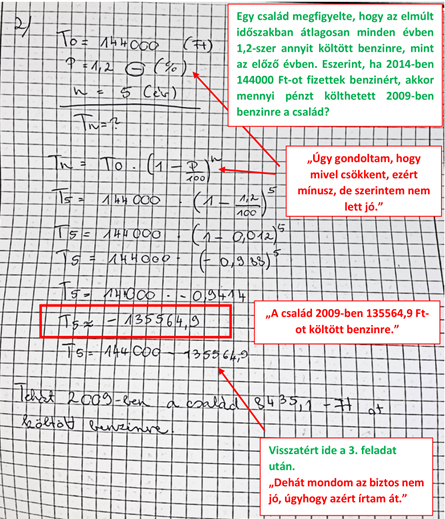 2)
T0 = 144000 (Ft)
P = 1,2 - (%)
n = 5 (év)
Tn = ?
Tn = T0 · (1 - P/100)^n
T5 = 144000 · (1 - 1,2/100)^5
T5 = 144000 · (1 - 0,012)^5
T5 = 144000 · (- 0,988)^5
T5 = 144000 · - 0,9414
T5 ≈ - 135564,9
T5 = 144000 - 135564,9
Tehát 2009-ben a család 8435,1 - Ft ot
költött benzinre.
Egy család megfigyelte, hogy az elmúlt
időszakban átlagosan minden évben
1,2-szer annyit költött benzinre, mint
az előző évben. Eszerint, ha 2014-ben
144000 Ft-ot fizettek benzinért, akkor
mennyi pénzt költhetett 2009-ben
benzinre a család?
„Úgy gondoltam, hogy
mivel csökkent, ezért
mínusz, de szerintem nem
lett jó.”
„A család 2009-ben 135564,9 Ft-
ot költött benzinre.”
Visszatért ide a 3. feladat
után.
„Dehát mondom az biztos nem
jó, úgyhogy azért írtam át.”